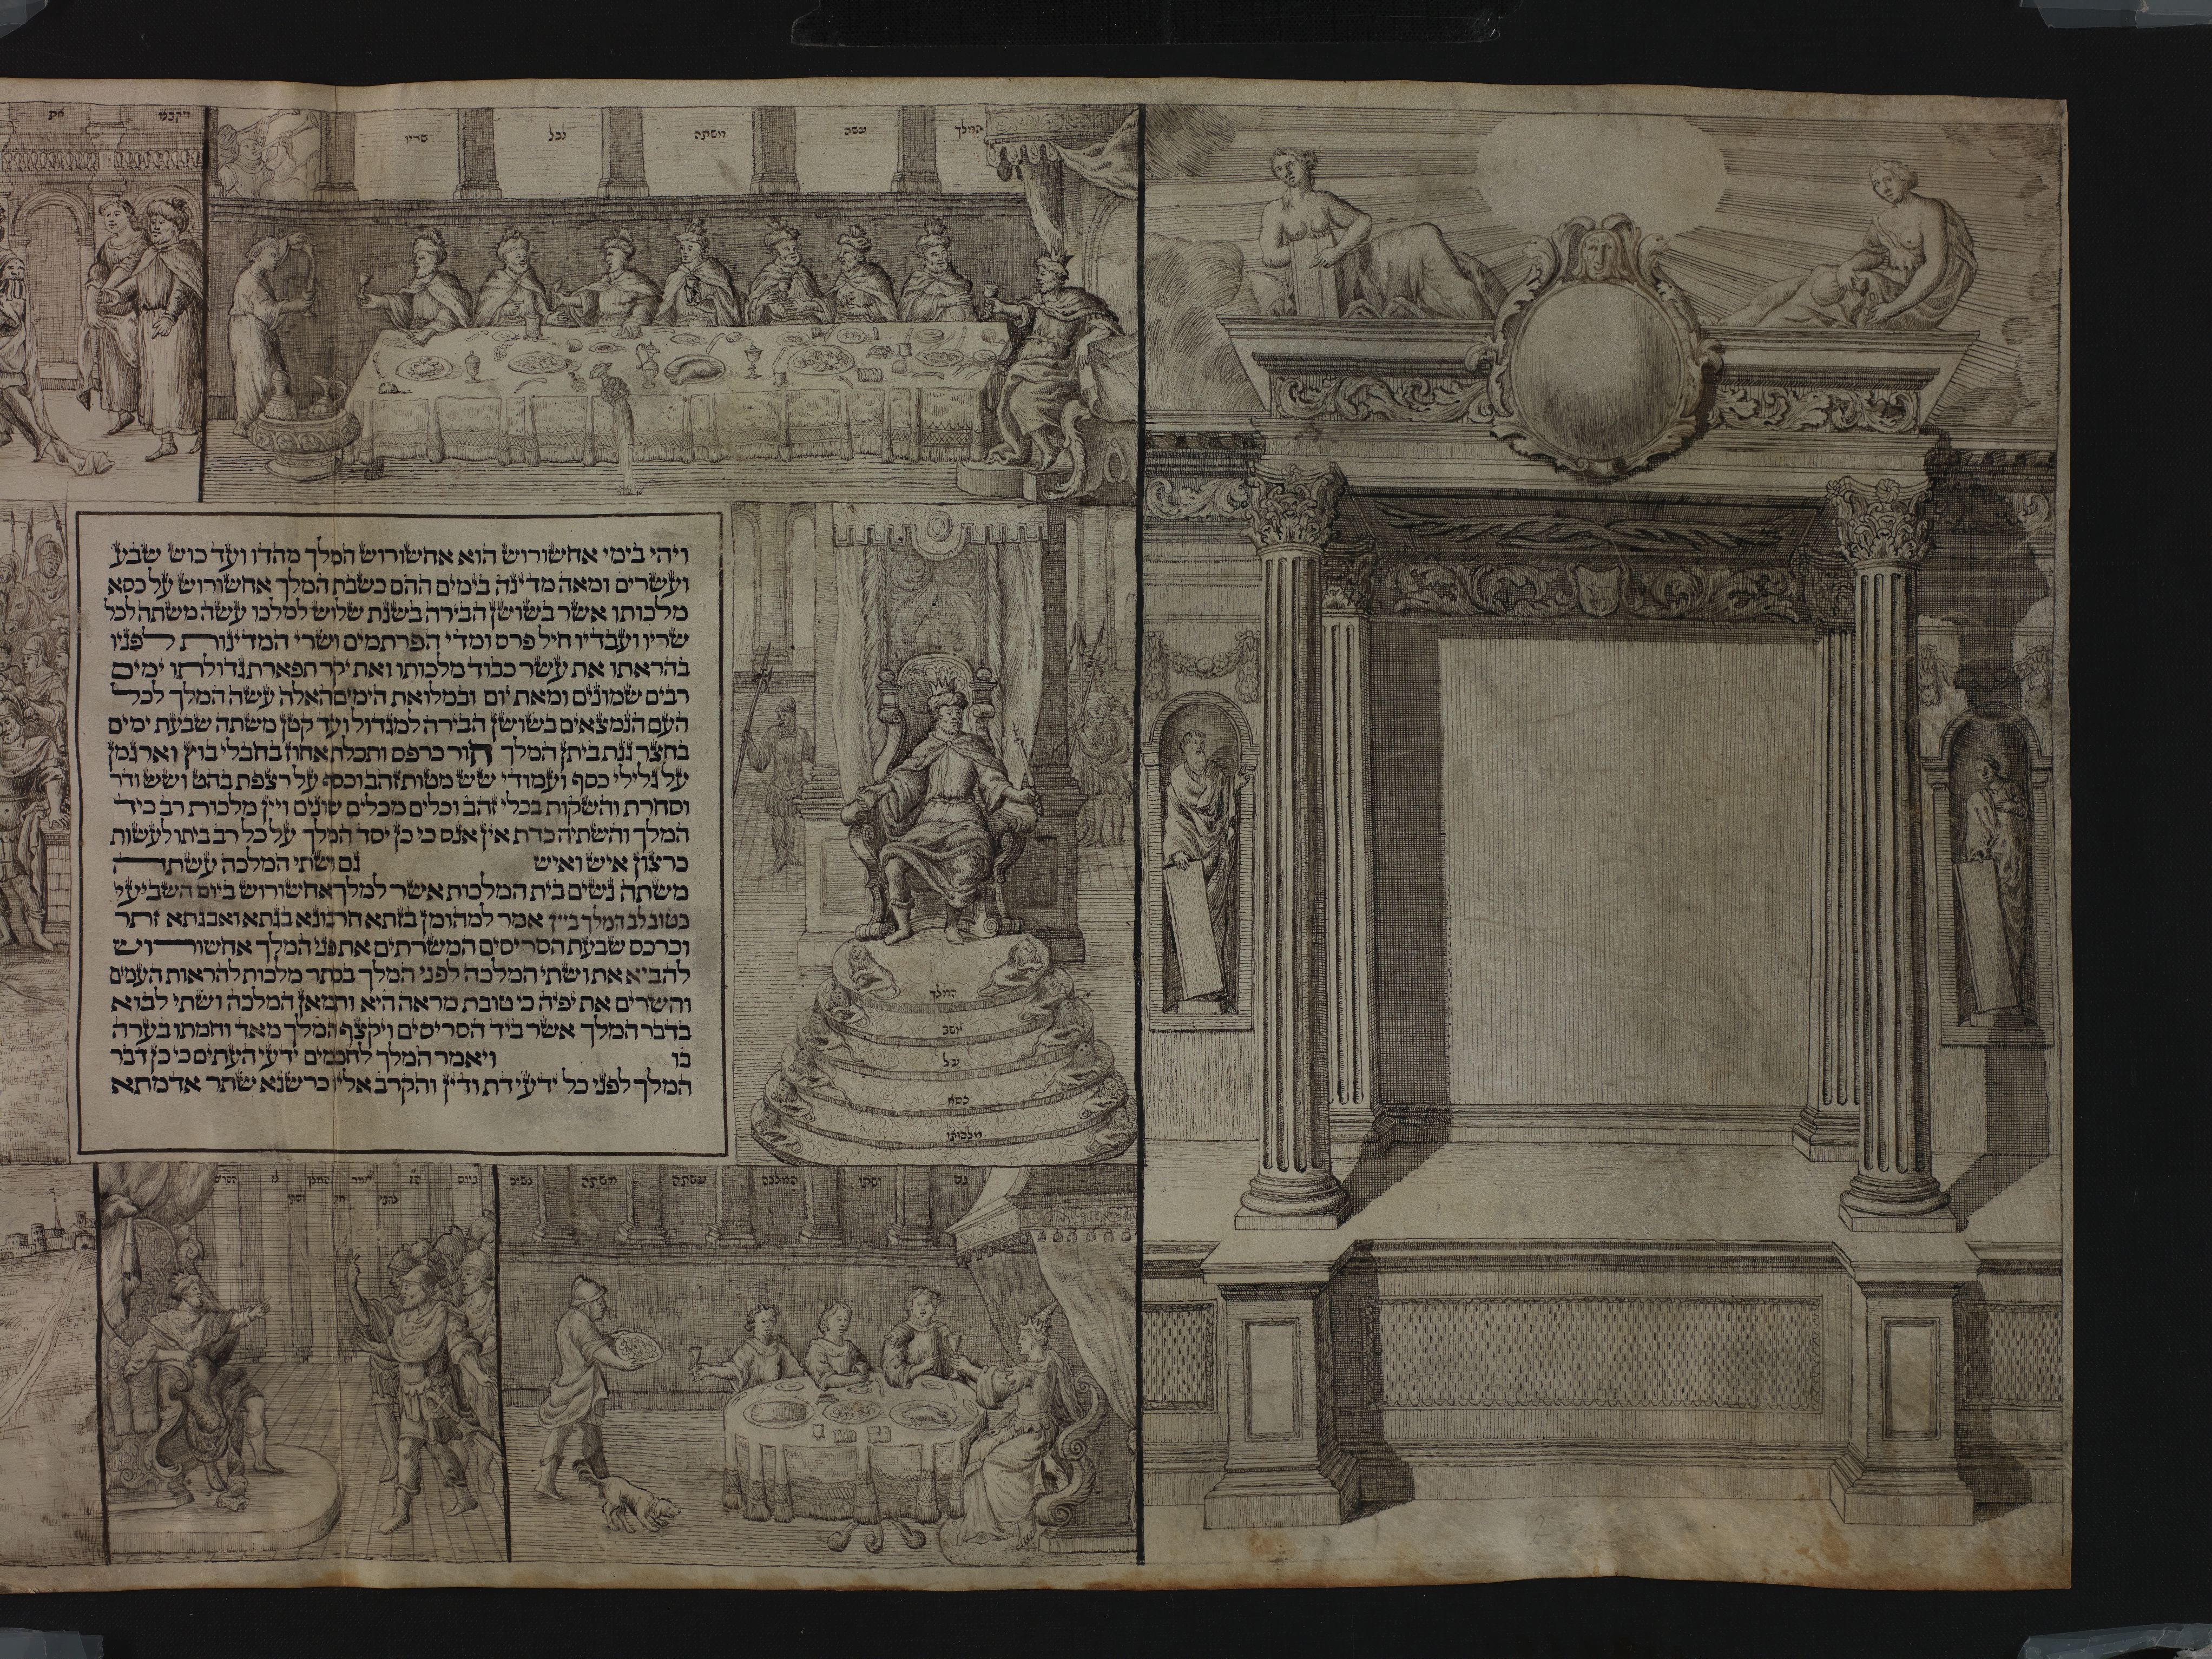 המלך עשה משתה לכל שריו
ויקבצו את
ויהי בימי אחשורוש הוא אחשורוש המלך מהדו ועד כוש שבע
ועשרים ומאה מדינה בימים ההם כשבת המלך אחשורוש על כסא
מלכותו אשר בשושן הבירה בשנת שלוש למלכו עשה משתה לכל
שריו ועבדיו חיל פרס ומדי הפרתמים ושרי המדינות לפניו
בהראתו את עשר כבוד מלכותו ואת יקר תפארת גדולתו ימים
רבים שמונים ומאת יום ובמלואת הימים האלה עשה המלך לכל
העם הנמצאים בשושן הבירה למגדול ועד קטן משתה שבעת ימים
בחצר גנת ביתן המלך חור כרפס ותכלת אחוז בחבלי בוץ וארגמן
על גלילי כסף ועמודי שש מטות זהב וכסף על רצפת בהט ושש ודר
וסחרת והשקות בכלי זהב וכלים מכלים שונים ויין מלכות רב כיד
המלך והשתיה כדת אין אנס כי כן יסד המלך על כל רב ביתו לעשות
כרצון איש ואיש גם ושתי המלכה עשתה
משתה נשים בית המלכות אשר למלך אחשורוש ביום השביעי
כטוב לב המלך ביין אמר למהומן בזתא חרבונא בגתא ואבגתא זתר
וכרכס שבעת הסריסים המשרתים את פני המלך אחשורוש
להביא את ושתי המלכה לפני המלך בכתר מלכות להראות העמים
והשרים את יפיה כי טובת מראה היא ותמאן המלכה ושתי לבוא
בדבר המלך אשר ביד הסריסים ויקצף המלך מאד וחמתו בערה
בו ויאמר המלך לחכמים ידעי העתים כי כן דבר
המלך לפני כל ידעי דת ודין והקרב אליו כרשנא שתר אדמתא
המלך
יושב
על
כסא
מלכותו
גם ושתי המלכה עשתה משתה נשים
ביום אמר המלך
את ושתי